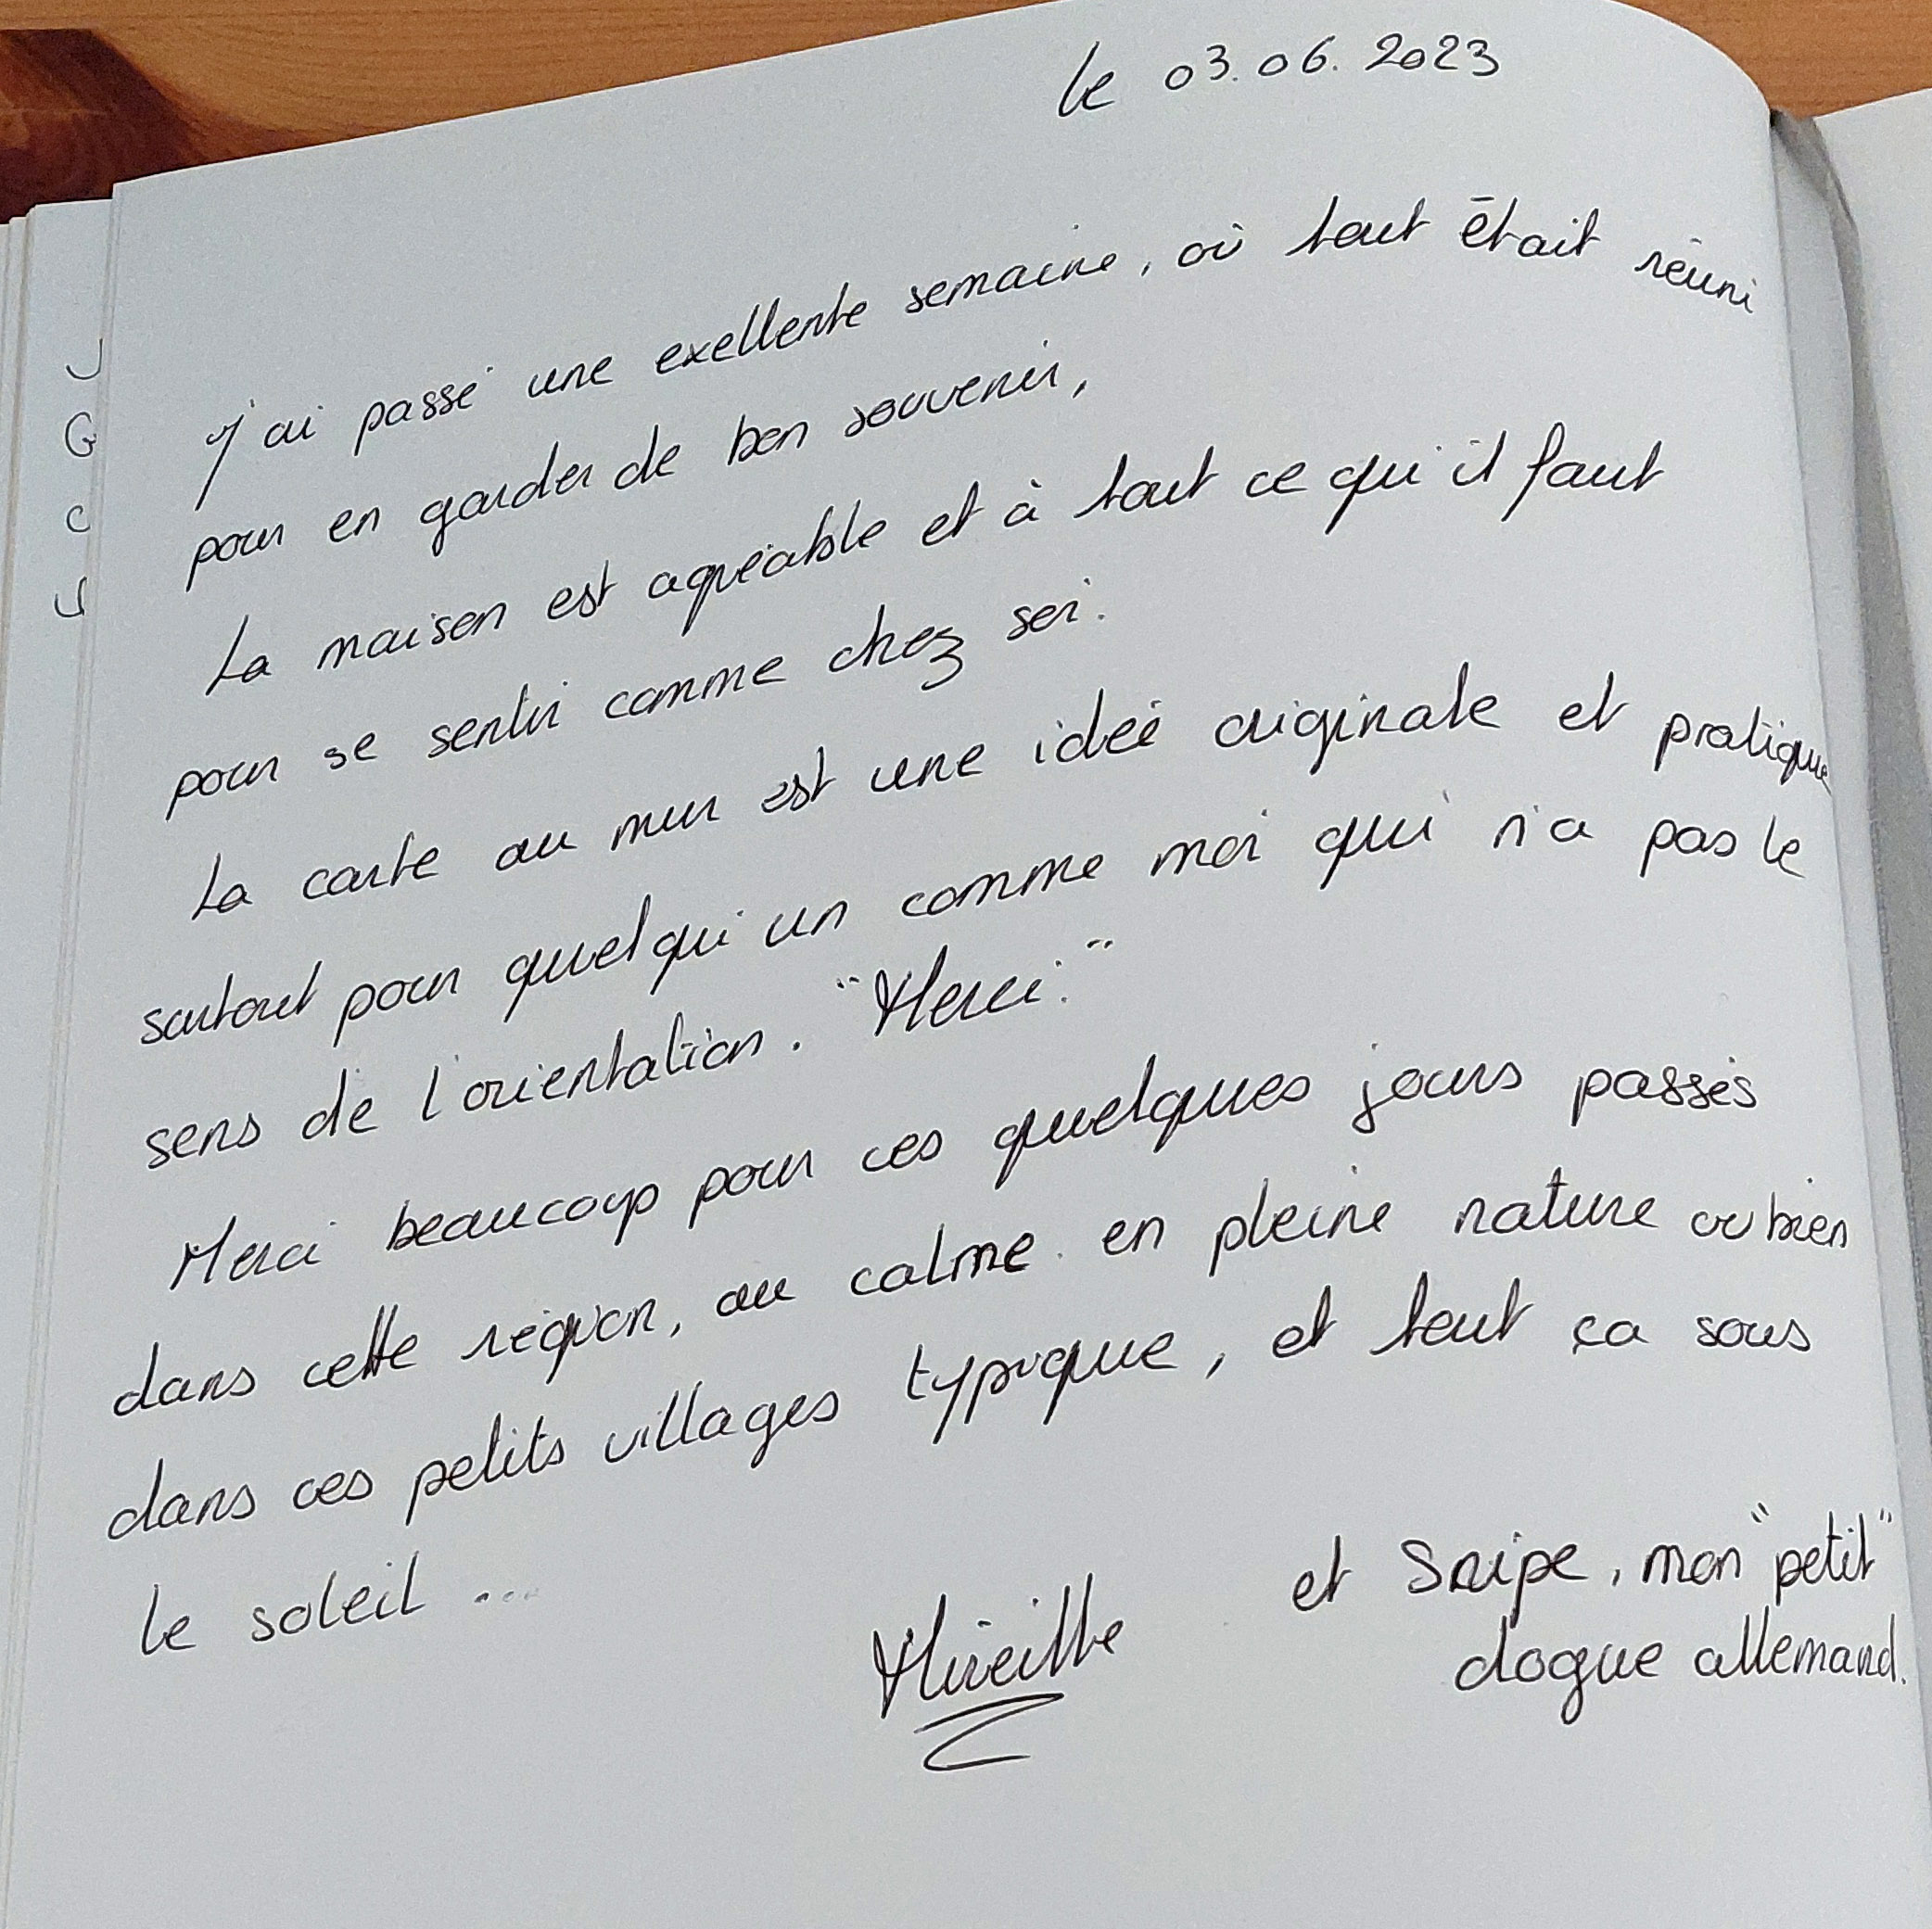 le 03.06.2023
J'ai passé une exellente semaine, où tout était réuni
pour en garder de bon souvenir,
La maison est agréable et à tout ce qu'il faut
pour se sentir comme chez soi.
La carte au mur est une idée originale et pratique
surtout pour quelqu'un comme moi qui n'a pas le
sens de l'orientation. "Merci."
Merci beaucoup pour ces quelques jours passés
dans cette région, au calme en pleine nature ou bien
dans ces petits villages typique, et tout ça sous
le soleil ...
Mireille
et Snipe, mon "petit"
dogue allemand.